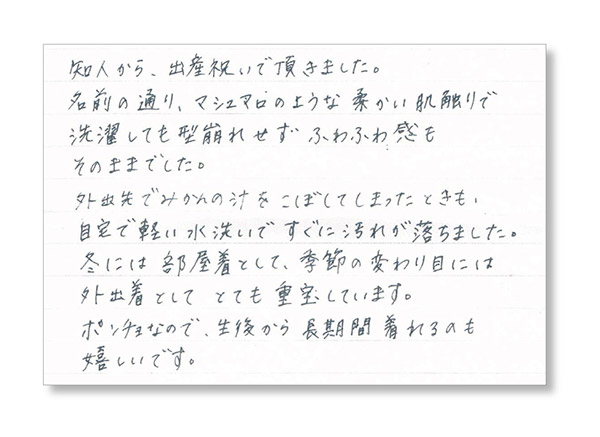 知人から、出産祝いで頂きました。
名前の通り、マシュマロのような柔かい肌触りで
洗濯しても型崩れせず ふわふわ感も
そのままでした。
外出先でみかんの汁をこぼしてしまったときも、
自宅で軽い水洗いですぐに汚れが落ちました。
冬には部屋着として、季節の変わり目には
外出着として とても重宝しています。
ポンチョなので、生後から長期間着れるのも
嬉しいです。